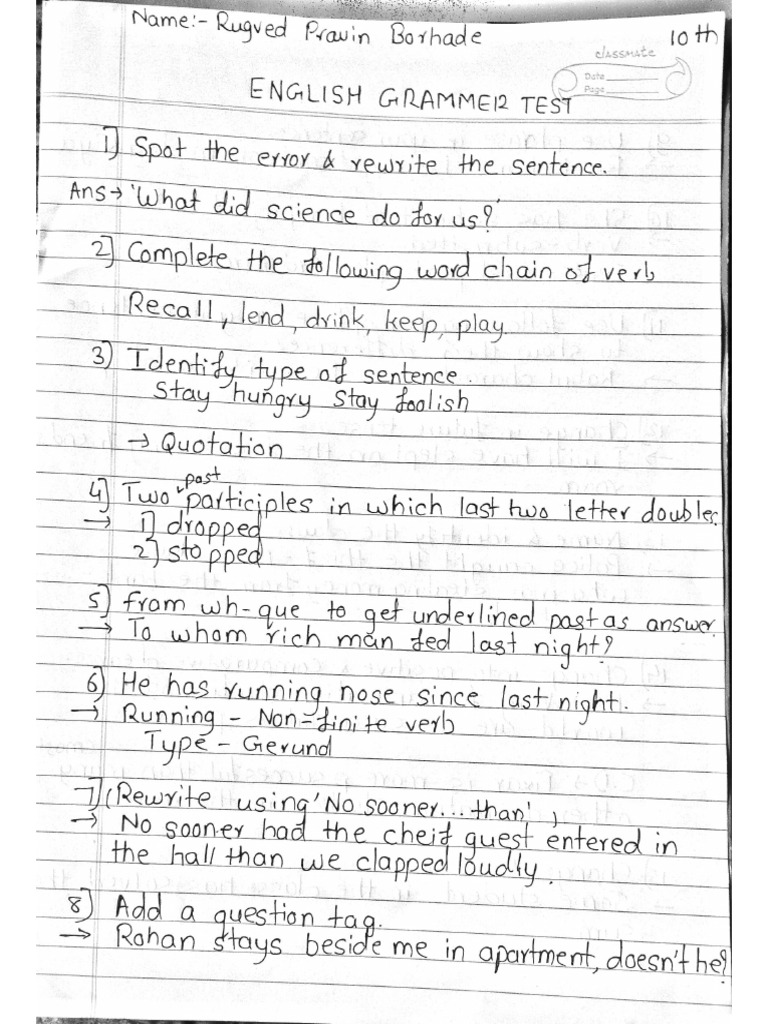 Name:- Rugved Pravin Borhade
10th
classmate
Date
Page
ENGLISH GRAMMER TEST
1] Spot the error & rewrite the sentence.
Ans → 'What did science do for us?'
2] Complete the following word chain of verb
Recall, lend, drink, keep, play.
3] Identify type of sentence.
Stay hungry stay foolish
→ Quotation
4] Two past participles in which last two letter doubles.
→ 1] dropped
2] stopped
5] from wh-que to get underlined past as answer.
→ To whom rich man fed last night?
6] He has running nose since last night.
→ Running - Non=finite verb
Type - Gerund
7] (Rewrite using 'No sooner...than',
→ No sooner had the cheif guest entered in
the hall than we clapped loudly.
8] Add a question tag.
→ Rohan stays beside me in apartment, doesn't he?